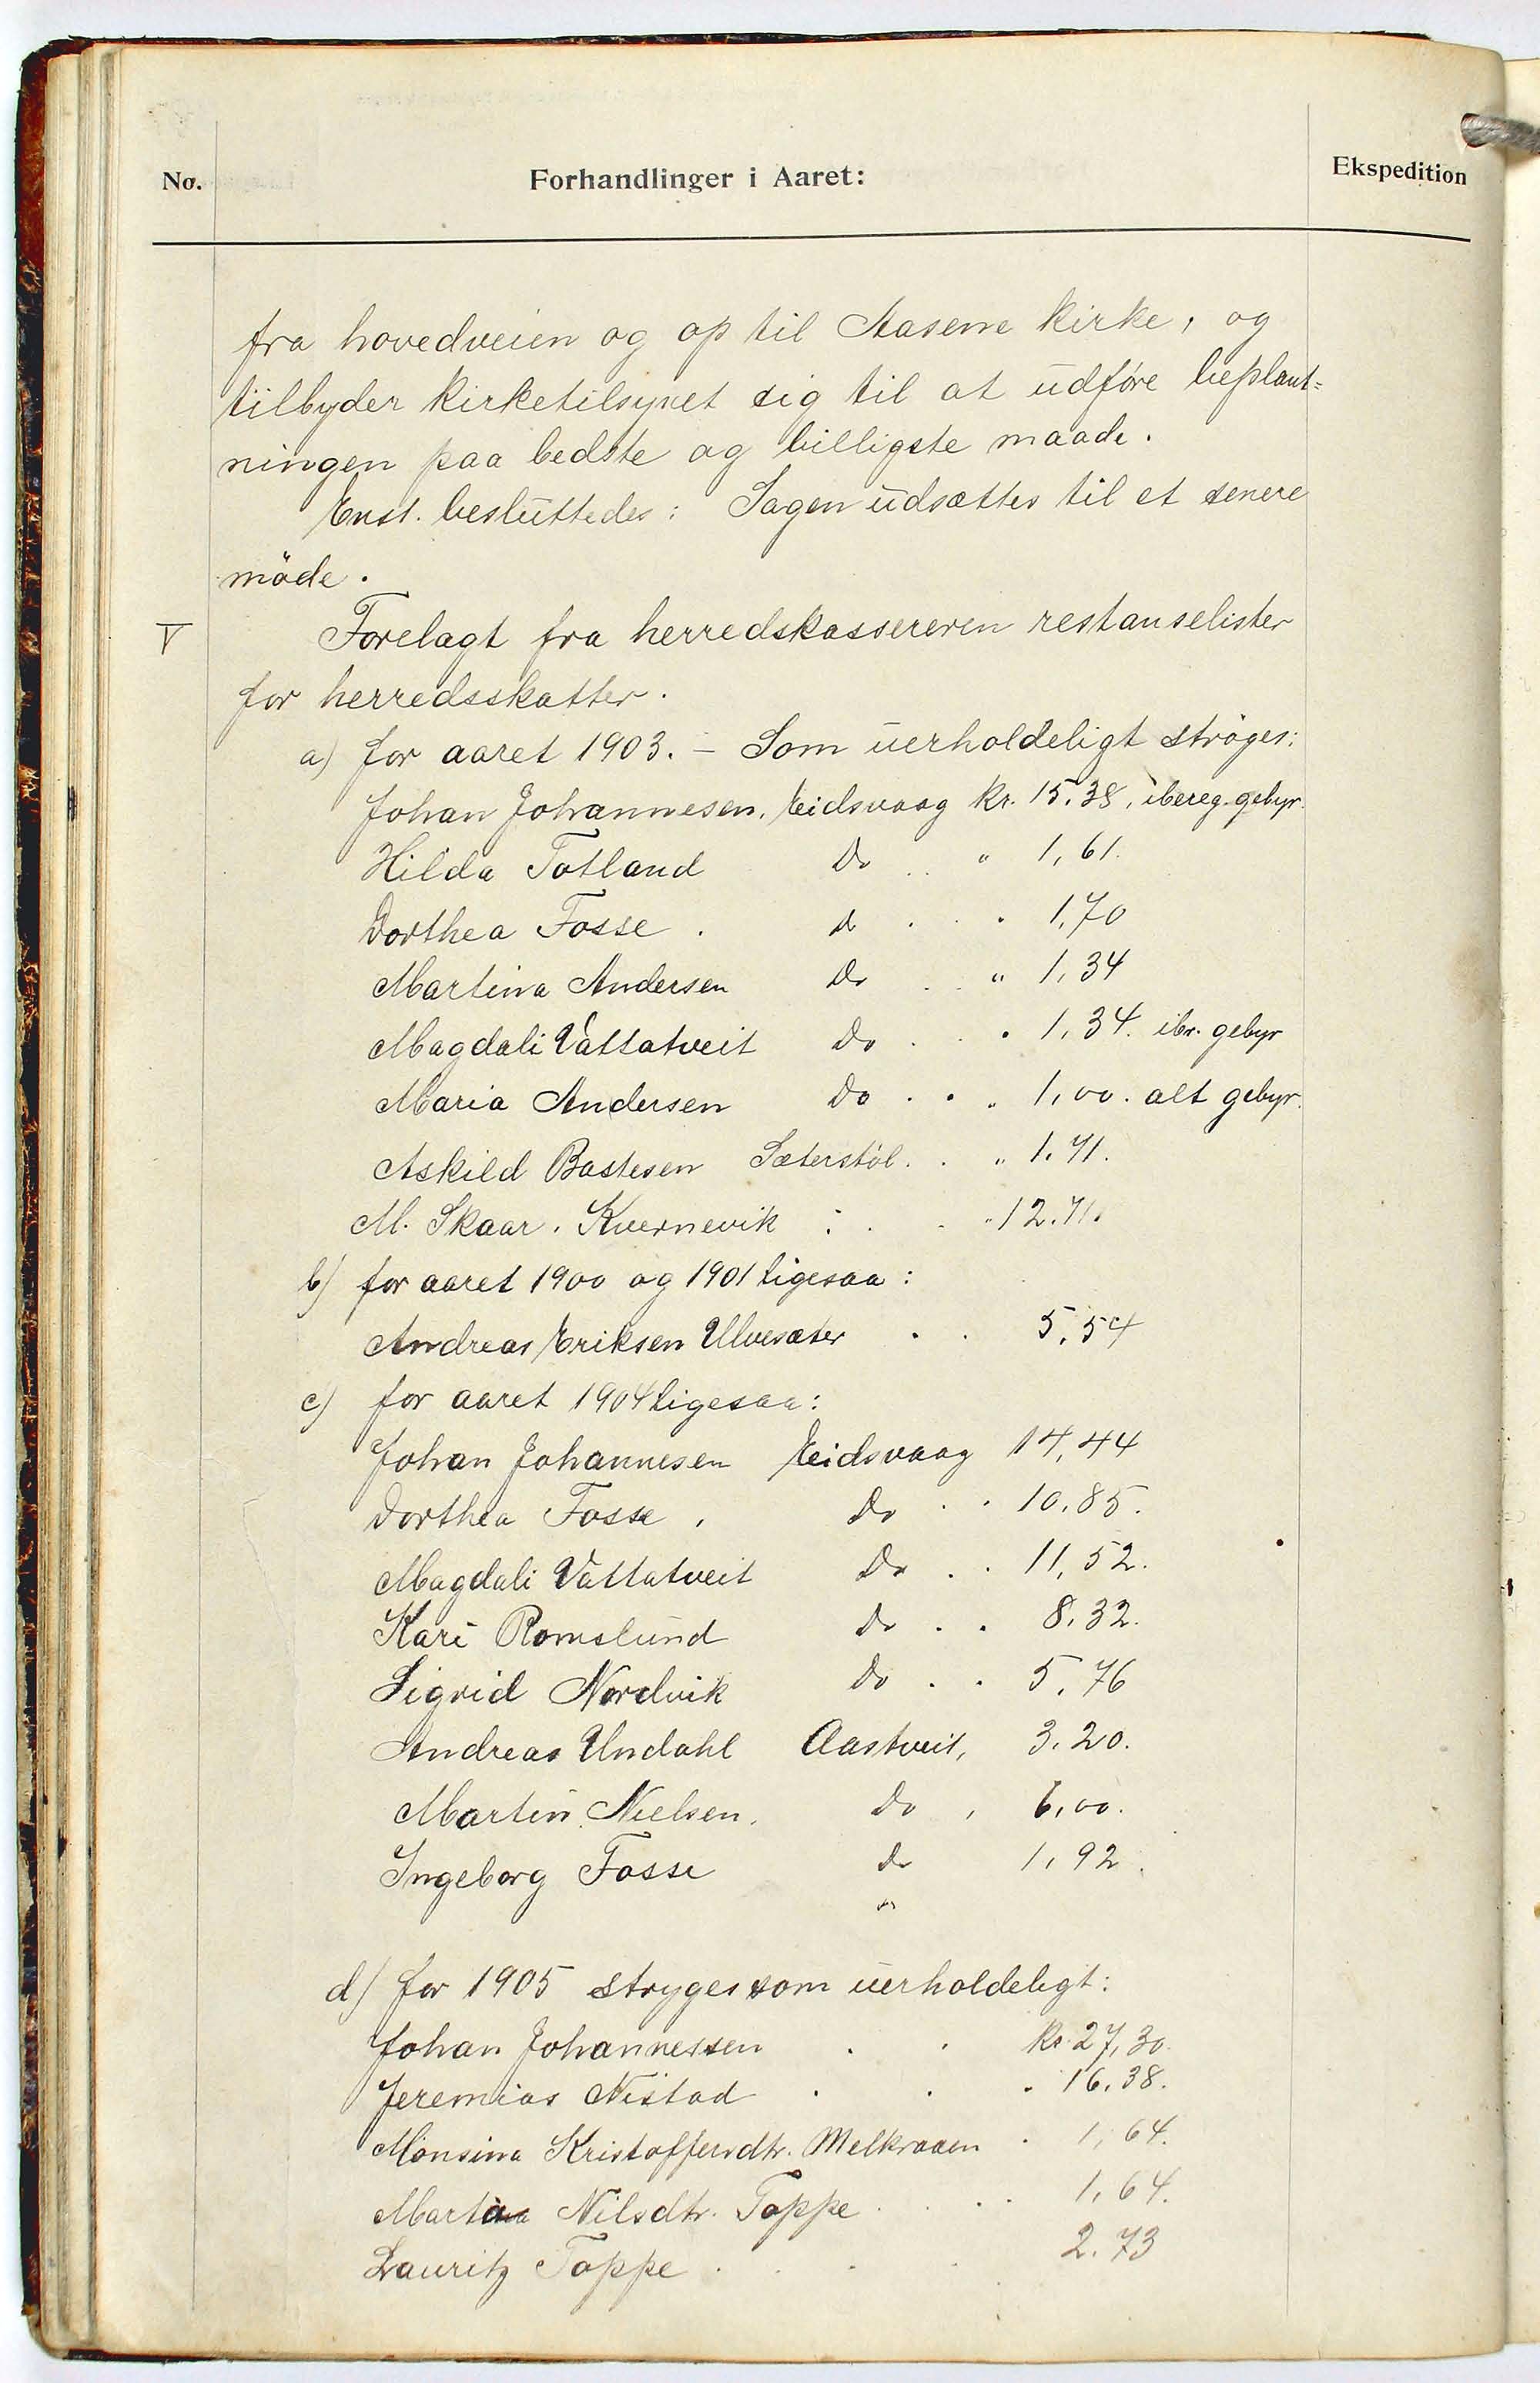 No.
Forhandlinger i Aaret:
Ekspedition
fra hovedveien og op til Aasene kirke, og
tilbyder kirketilsynet sig til at udføre beplant=
ningen paa bedste og billigste maade.
Enst. besluttedes: Sagen udsættes til et senere
möde.
V Forelagt fra herredskassereren restanselister
for herredsskatter.
a) for aaret 1903. – Som uerholdeligt ströges:
Johan Johannesen, Eidsvaag kr. 15.38, ibereg. gebyr.
Hilda Totland Do . . " 1,61.
Dorthea Fosse . do . . . 1,70
Martina Andersen Do . . " 1,34
Magdali Vattatveit Do . . . 1,34. ibr. gebyr
Maria Andersen Do . . „ 1,00. alt gebyr.
Askild Bastesen Sæterstöl . . „ 1.71.
M. Skaar. Kvernevik : . . " 12.71.
b) for aaret 1900 og 1901 ligesaa:
Andreas Eriksen Ulvesæter . . 5,54
c) for aaret 1904 ligesaa:
Johan Johannesen Eidsvaag 14,44
Dorthea Fosse , Do . . 10.85.
Magdali Vattatveit Do . . 11,52.
Kari Romslund do . . 8.32.
Sigrid Nordvik do . . 5.76
Andreas Undahl Aastveit, 3.20.
Martin Nielsen. do , 6,00.
Ingeborg Fosse do 1,92.
"
d) for 1905 stryges som uerholdeligt:
Johan Johannessen . . kr. 27,30.
Jeremias Nistad . . . 16.38.
Monsina Kristoffersdtr. Melkraaen . 1,64.
Martina Nilsdtr. Toppe . . . . 1,64.
Lauritz Toppe . . . 2.73